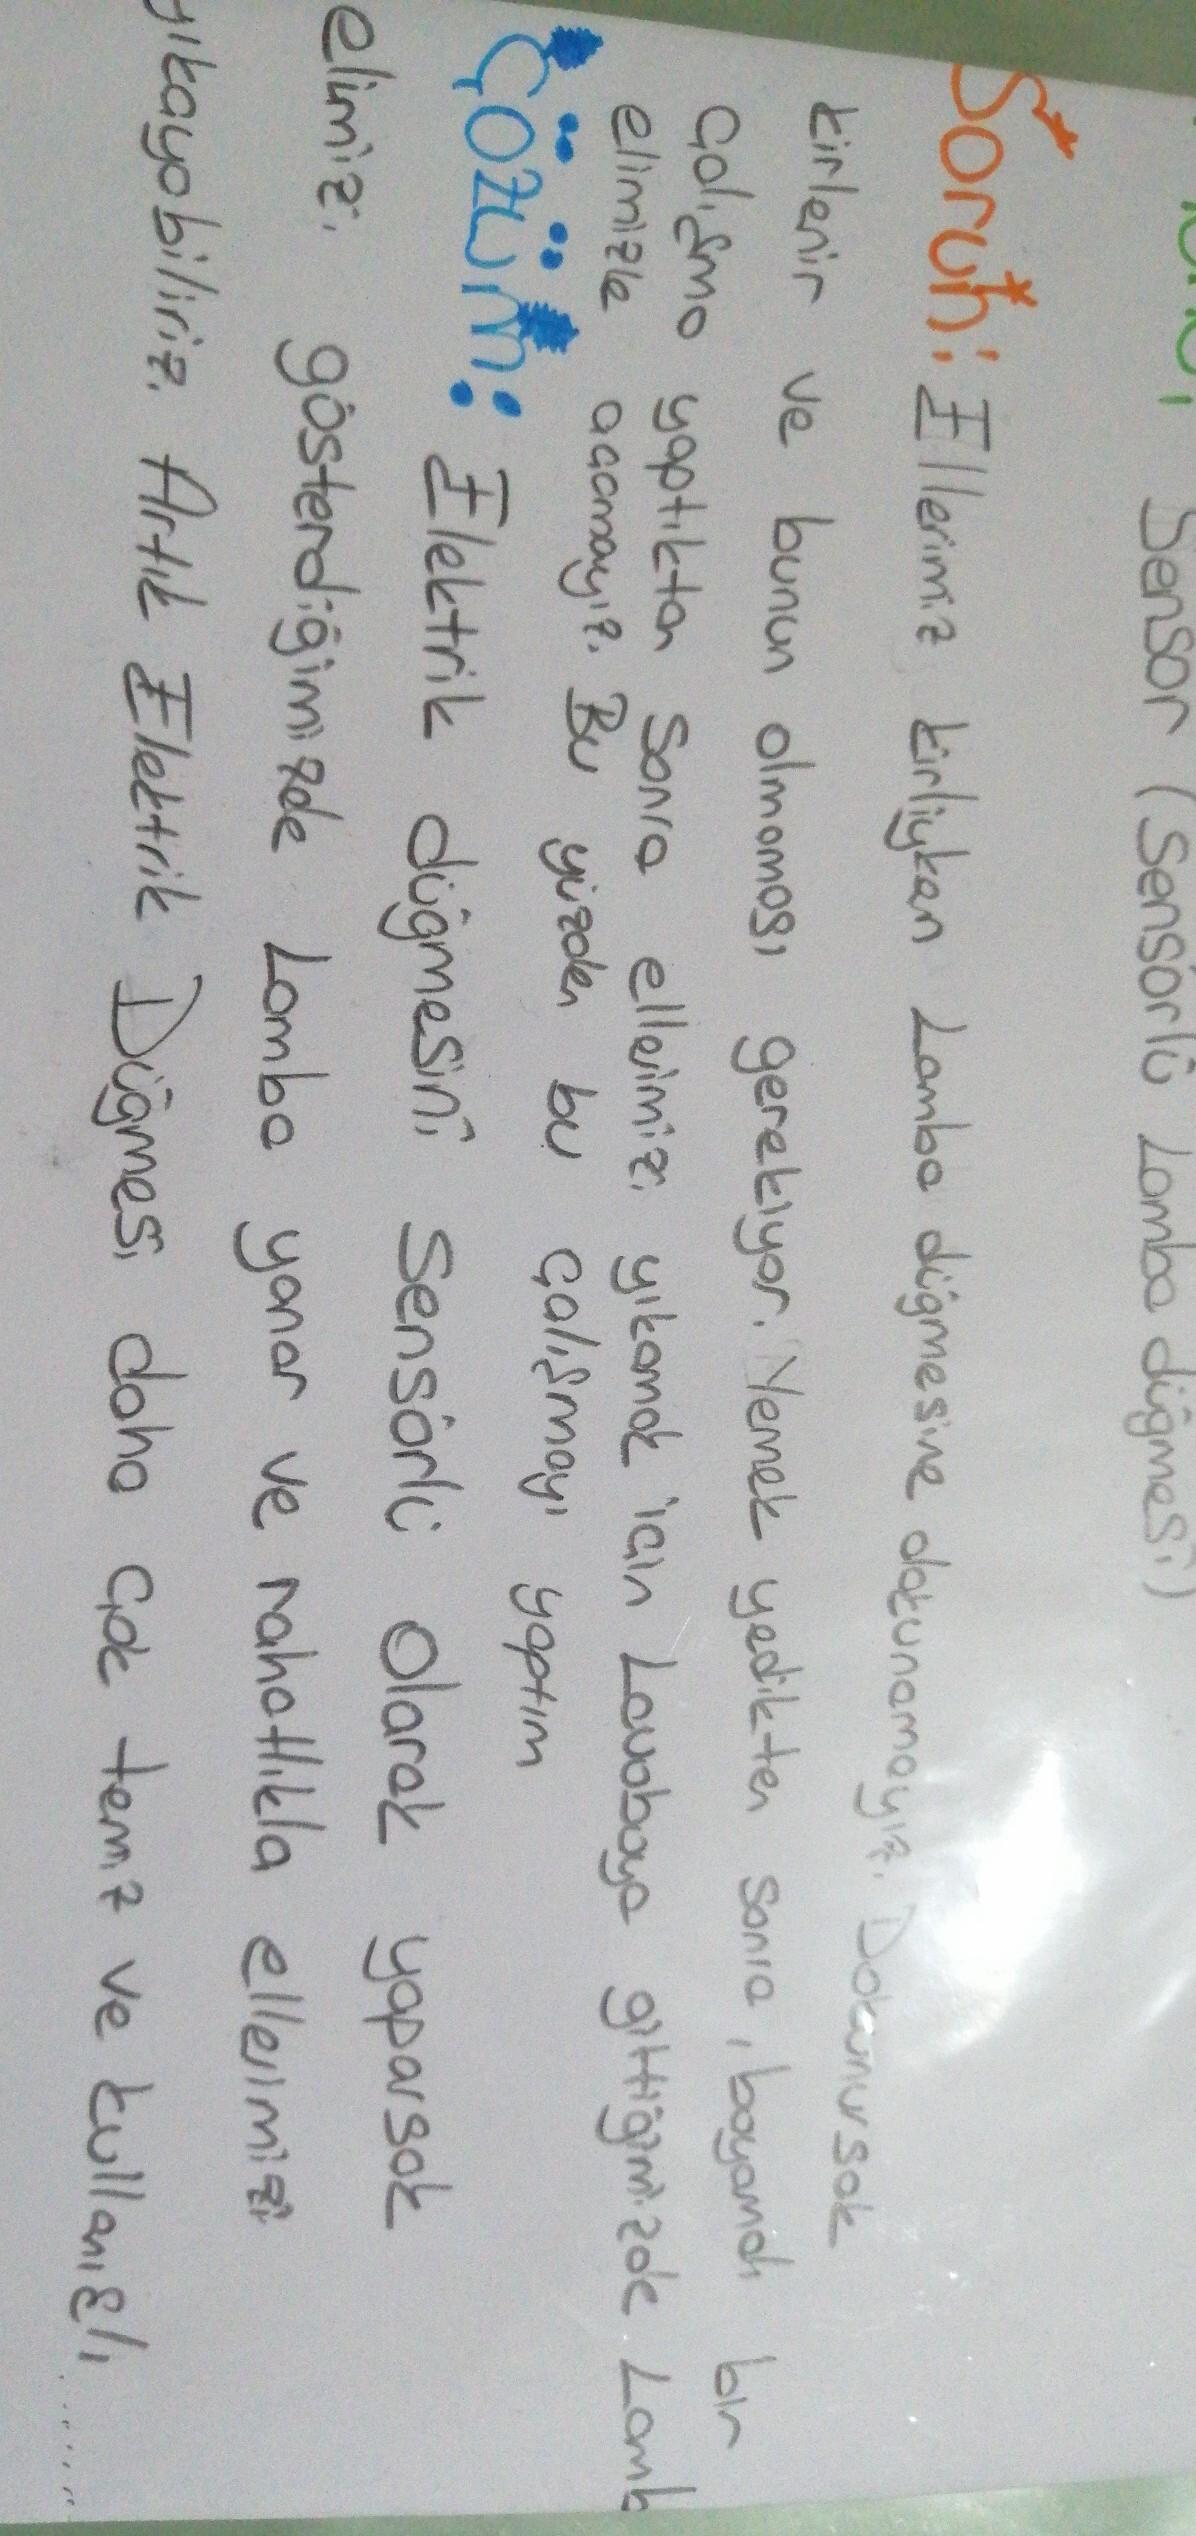 Sensor (Sensörlü Lamba düğmesi)
Sorun: Ellerimiz kirliyken Lamba düğmesine dokunamayız. Dokunursak
kirlenir ve bunun olmaması gerekiyor. Yemek yedikten sonra, boyamalı bir
Çalışma yaptıktan Sonra ellerimizi yıkamak için Lavaboya gittiğimizde Lamb
elimizle açamayız. Bu yüzden bu çalışmayı yaptım
Çözüm: Elektrik düğmesini Sensörlü Olarak yaparsak
elimizi gösterdiğimizde Lamba yanar ve rahatlıkla ellerimizi
yıkayabiliriz. Artık Elektrik Düğmesi daha çok temiz ve kullanışlı......